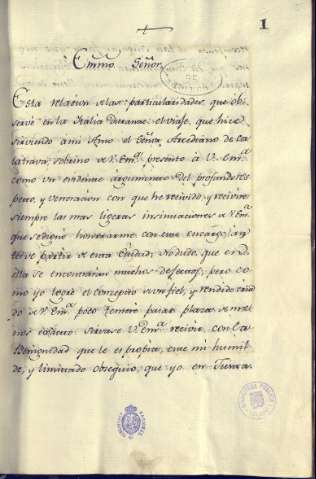 1
Emmo. Señor
Esta relacion de las particularidades, que obser
vé en la Italia durante el viaje, que hice
sirviendo a mi Amo el Señor Arcediano de Ca
latrava, sobrino de V. Emª. presento à V. Emª.
como un evidente argumento del profundo res
peto, y veneracion con que he recivido, y recivire
siempre las mas ligeras insinuaciones de V. Emª.
que se dignò honrarme con este encargo, an
tes de partir de esta Ciudad. No dudo, que en
ella se encontraran muchos defectos; pero co
mo yo logre el concepto de un fiel, y rendido cria
do de V. Emª. poco temere pasar plaza de me
nos Dignese V. Emª. recivir, con la
Benignidad que le es propia, este mi humil
de, y limitado obsequio, que yo en